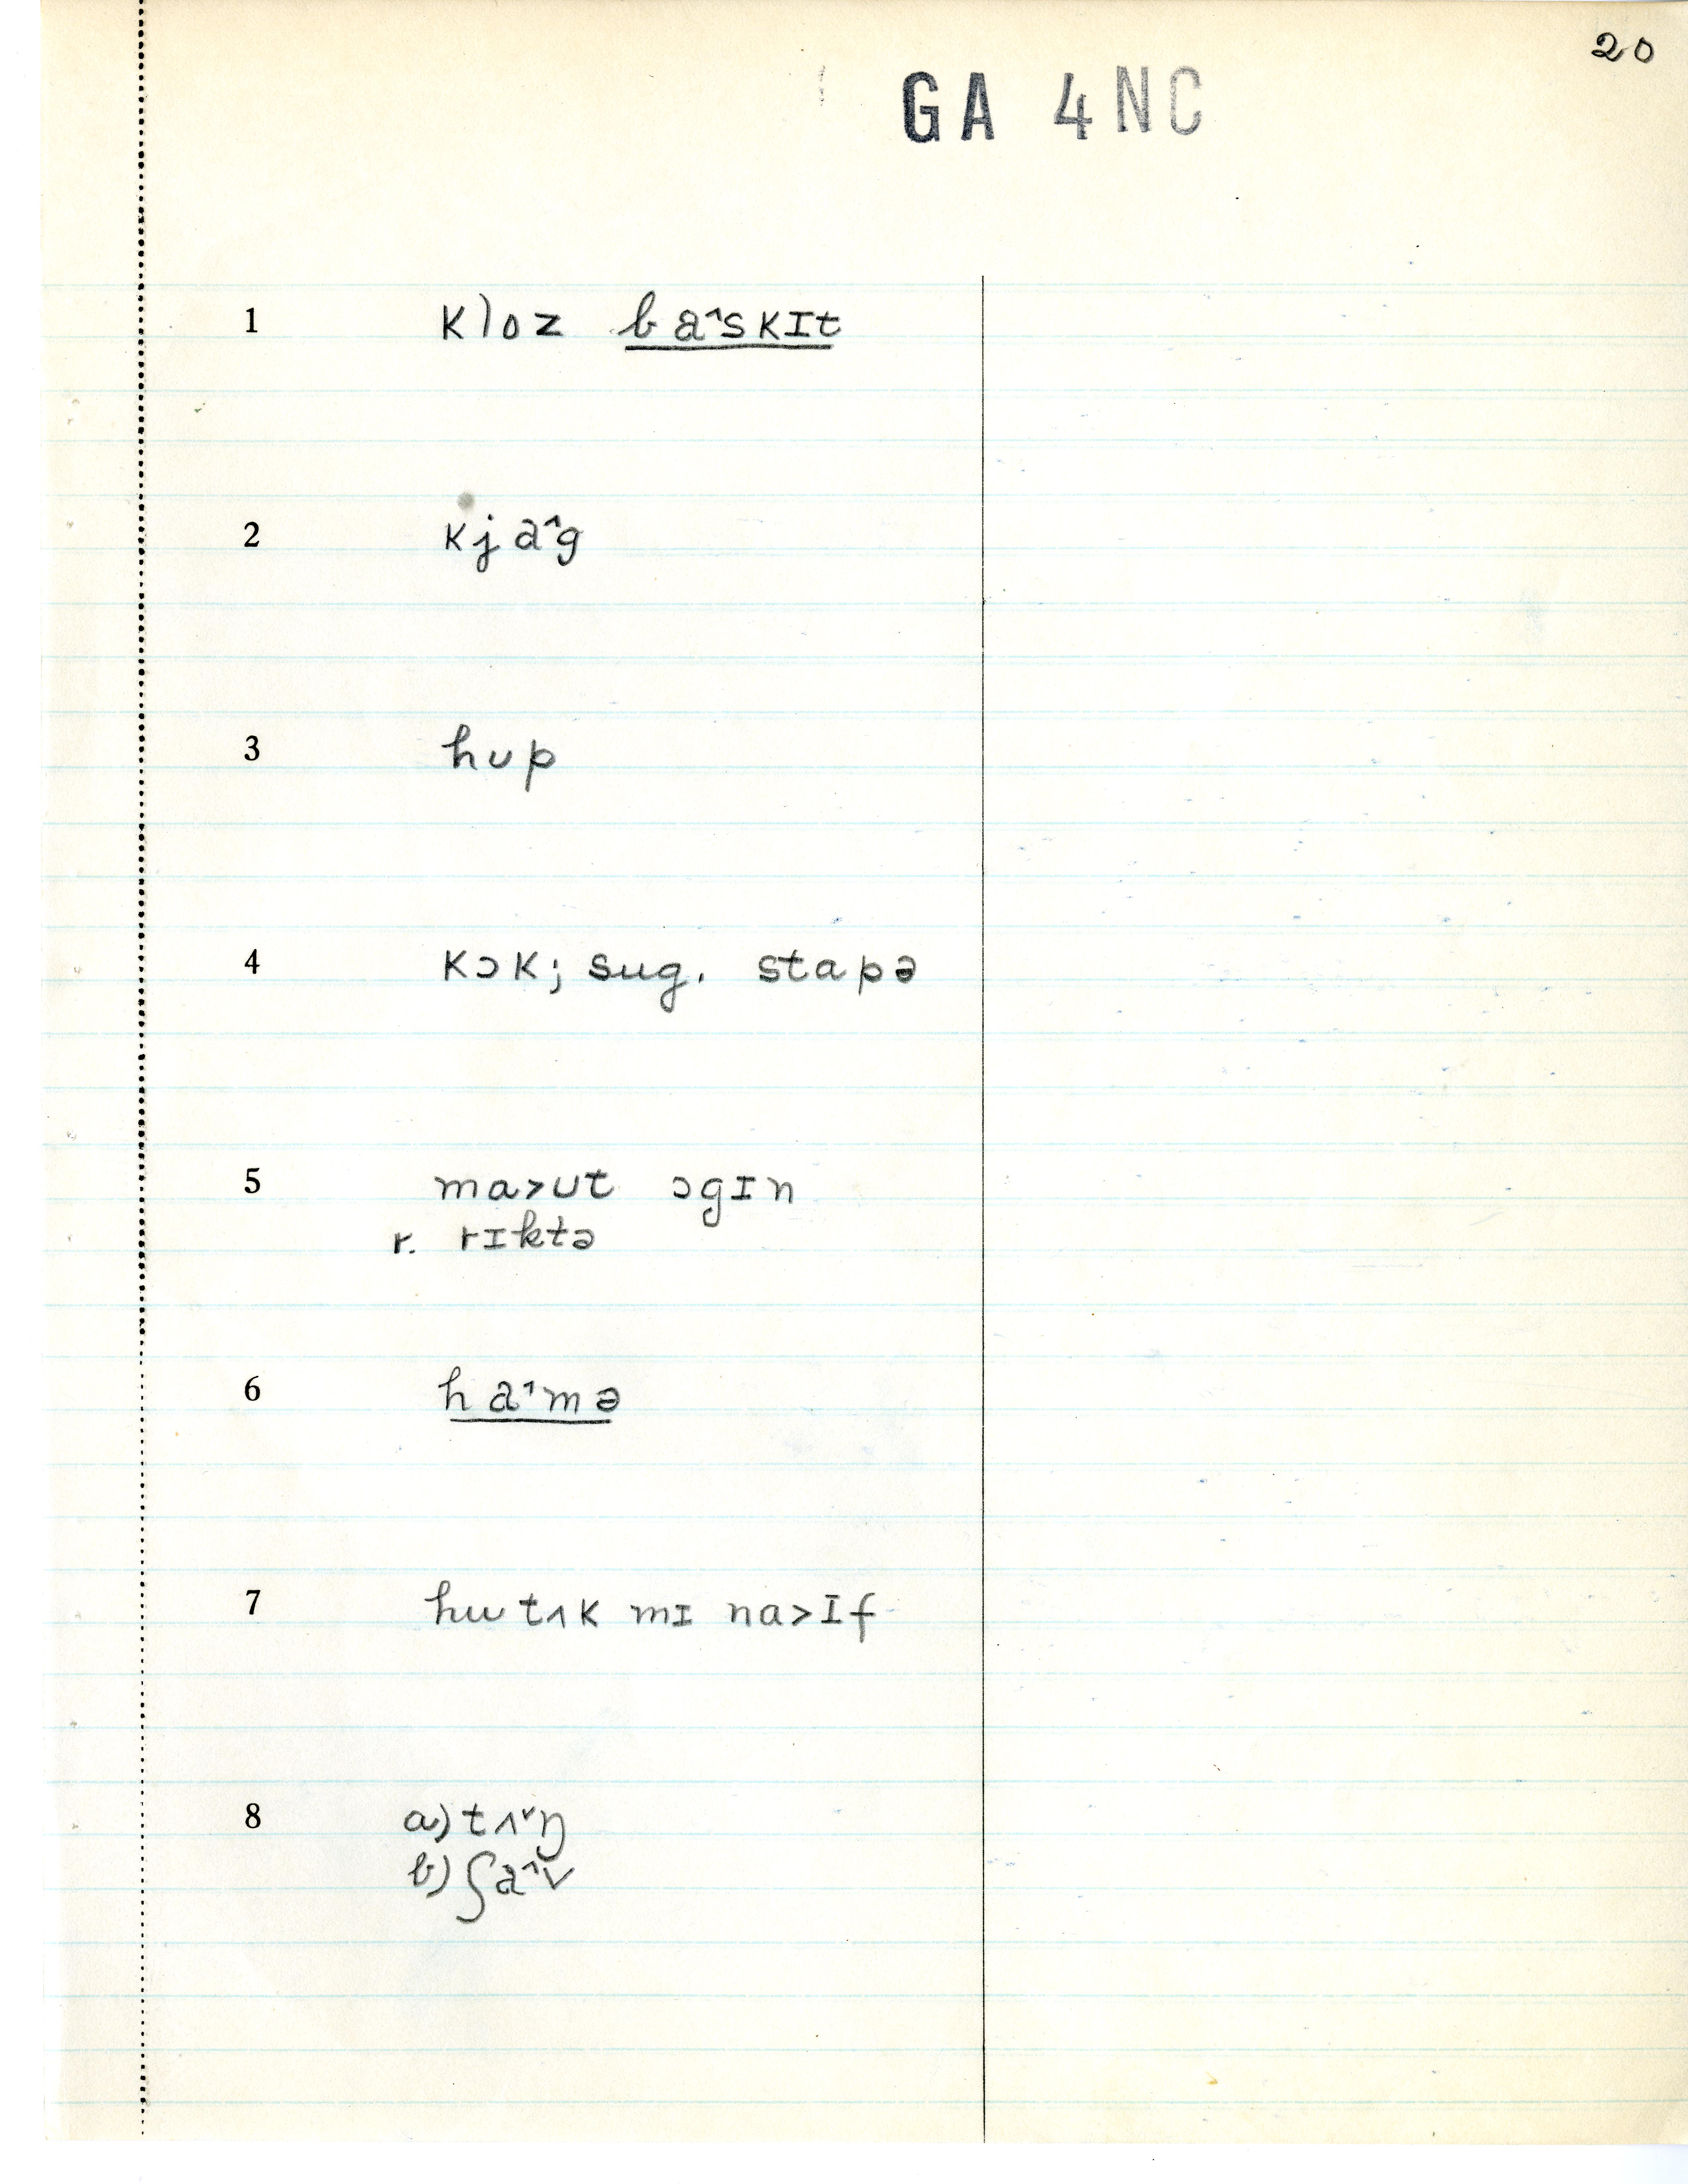 20
GA 4NC
1 kloz ba^skɪt
2 kja^g
3 hʊp
4 kɔk; sug. stapə
5 ma>ʊt ɔgɪn
r. rɪktə
6 ha^mə
7 hu tʌk mɪ na>ɪf
8 a) tʌˇŋ
b) ʃa^v